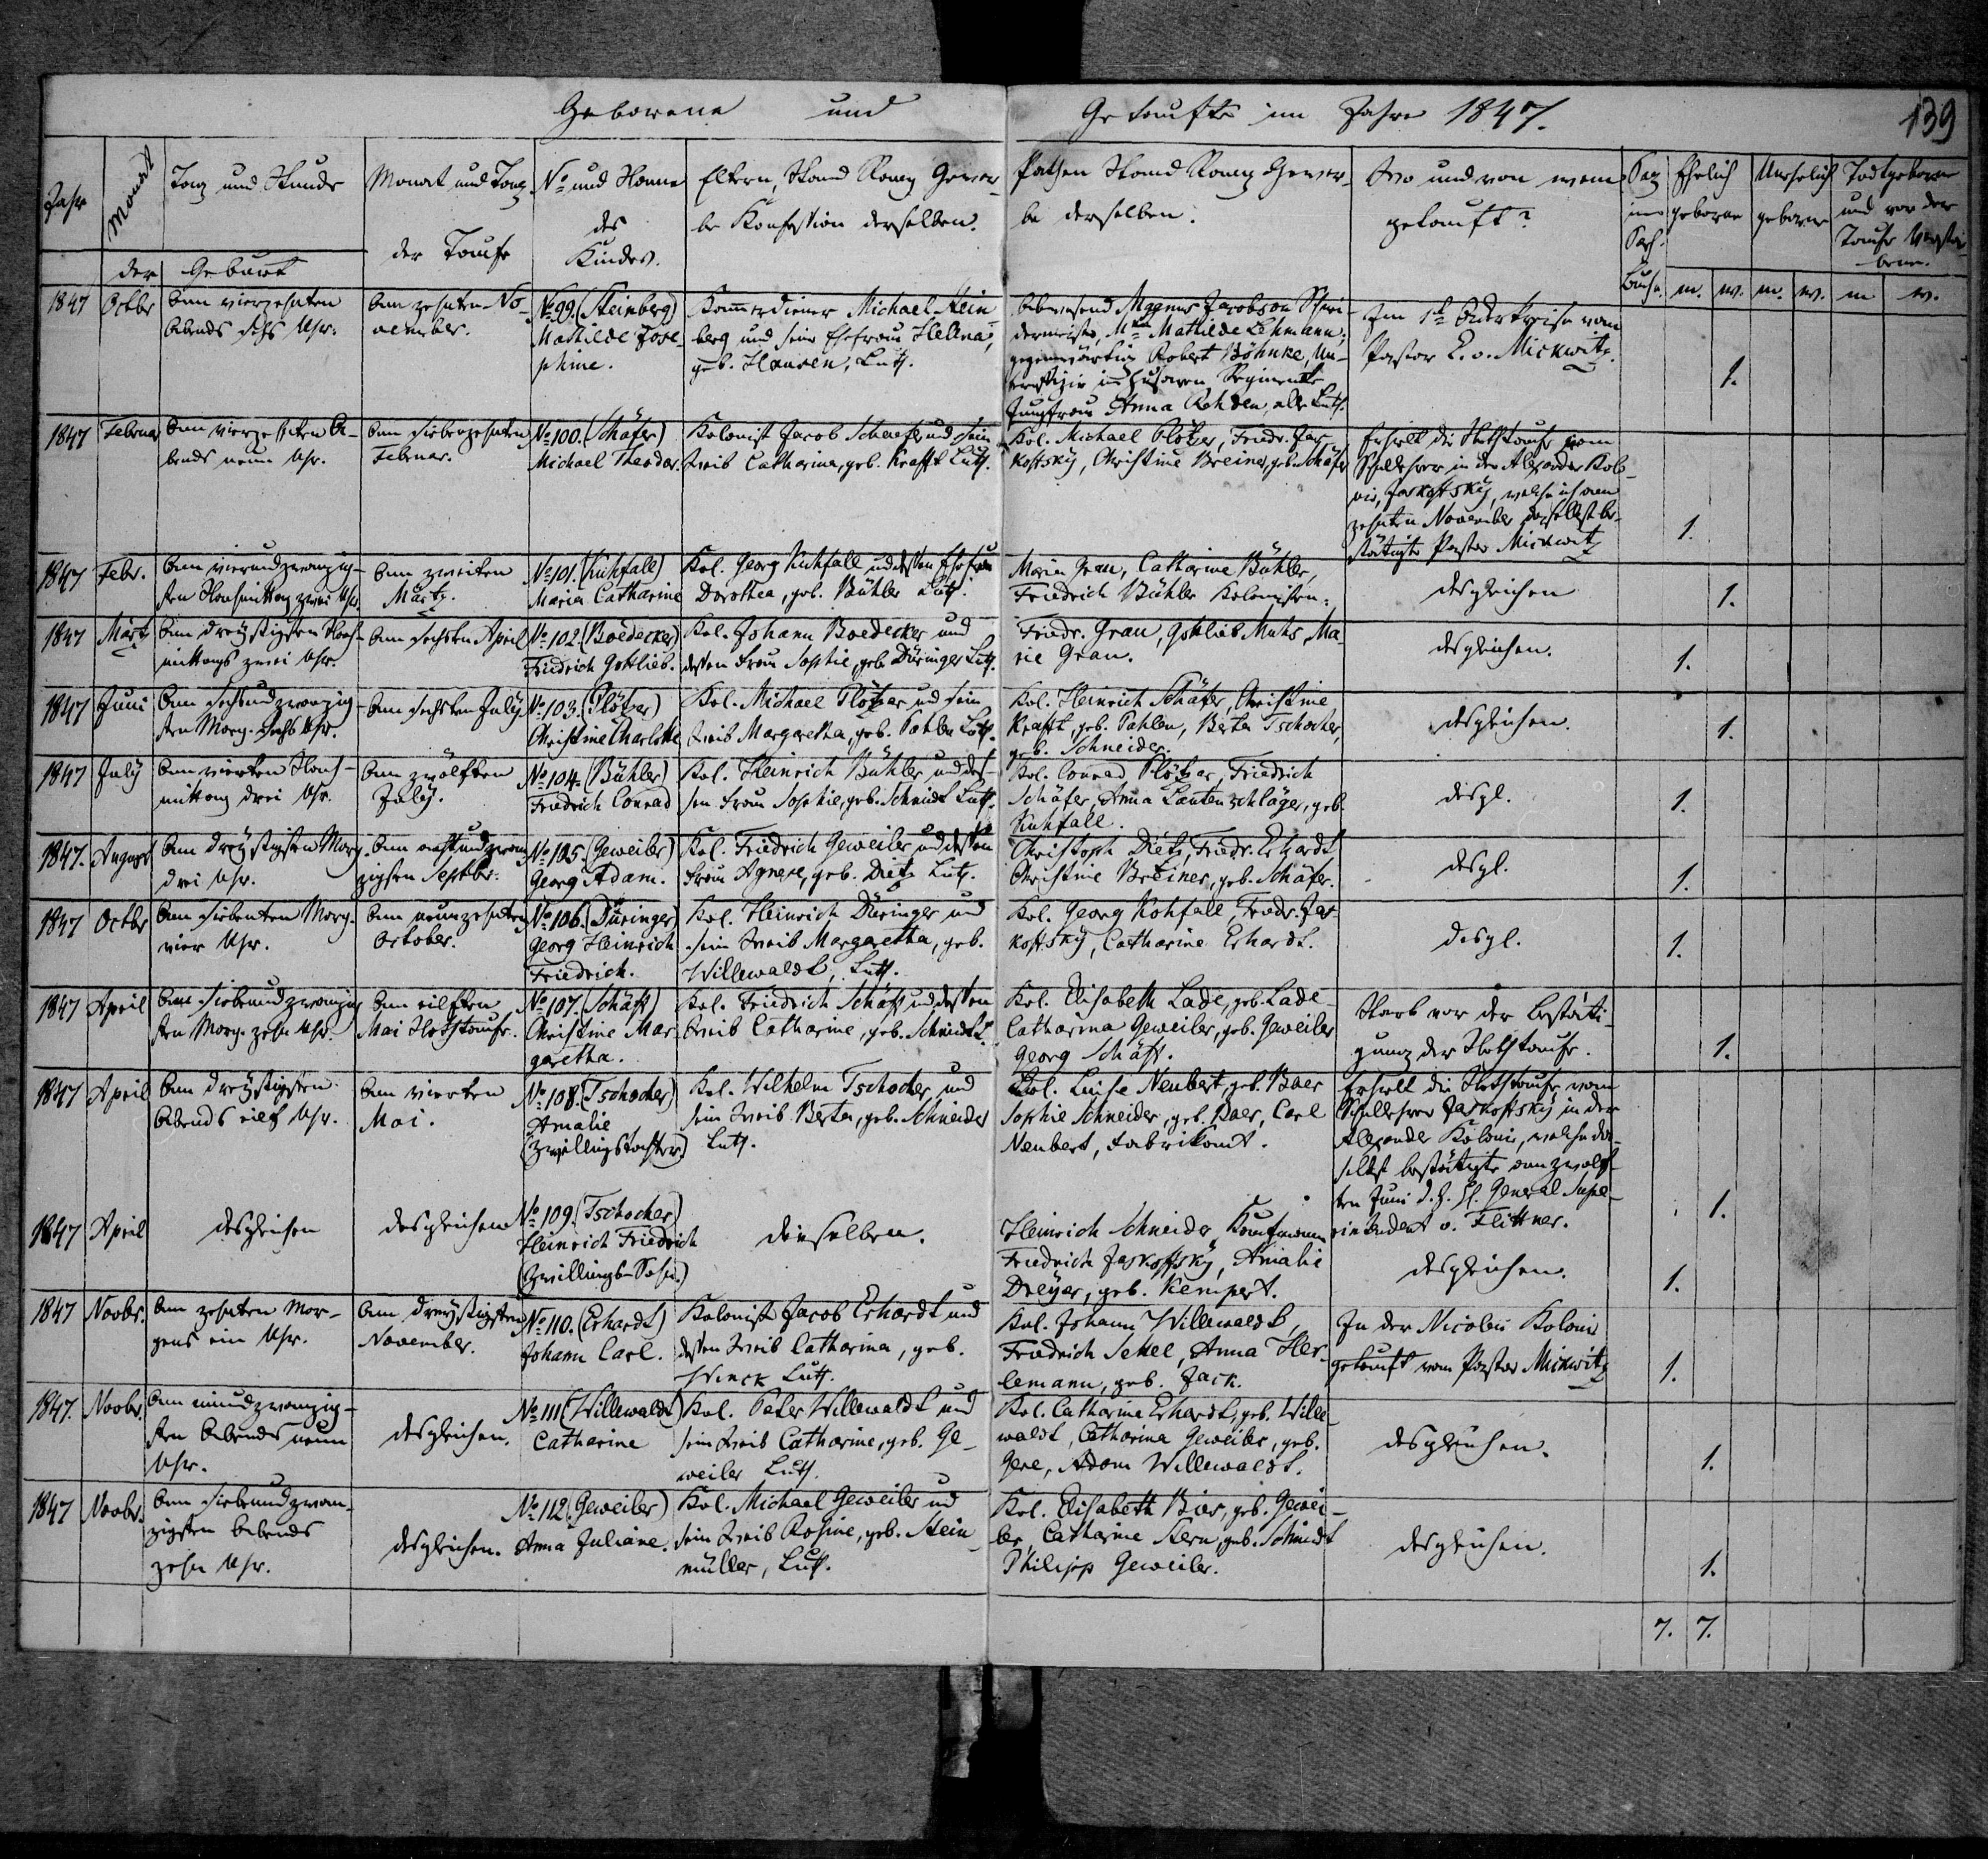 Geborene und Getaufte im Jahre 1847.
139
Jahr
Monat
Tag und Stunde
der Geburt
Monat und Tag
der Taufe
No und Name
des
Kindes.
Eltern, Stand Rang Gewer-
be Konfession derselben.
Pathen Stand Rang Gewer-
be derselben.
Wo und von wem
getauft?
Ehelich
geborne
Unehelich
geborne
Todtgeborne
und vor der
Taufe Verstor-
bene.
m. w. m. w. m w.
1847 Octbr
Am vierzehnten
Abends sechs Uhr.
Am zehnten No-
vember.
No 99. (Steinberg)
Mathilde Jose-
phine.
Kammerdiener Michael Stein
berg und seine Ehefrau Helena,
geb. Hansen, Luth.
Abwesend Magnus Jacobson Schnei-
dermeister, Mathilde Lehmann,
gegenwärtig Robert Böhnke, Un-
Regimente
Jungfrau Anna Rohden, alle Luth.
Pastor E. v. Mickwitz.
1.
1847 Februar
Am vierzehnten A-
bends neun Uhr.
Am siebenzehnten
Februar.
No 100. (Schäfer)
Michael Theodor.
Kolonist Jacob Schaefer und sein
Weib Catharina, geb. Krafft Luth.
Kol. Michael Plötzer, Friedr. Jas
koffsky, Christine Breiner, geb. Schäfer
Erhielt die Nothtaufe vom
Schullehrer in der Alexander Kolo-
nie, Jaskoffsky, welche ich am
zehnten November daselbst be-
stätigte Pastor Mickwitz
1.
1847 Febr.
Am vierundzwanzig-
sten Nachmittag zwei Uhr
Am zweiten
Märtz.
No 101. (Kuhfall)
Maria Catharine
Kol. Georg Kuhfall und dessen Ehefrau
Dorothea, geb. Bühler Luth.
Maria Grau, Catharine Bühler,
Friedrich Bühler Kolonisten.
desgleichen
1.
1847 Märtz
Am dreyssigsten Nach-
mittags zwei Uhr.
Am sechsten April
No 102. (Boedecker)
Friedrich Gottlieb.
Kol. Johann Boedecker und
dessen Frau Sophie, geb. Düringer Luth.
Friedr. Grau, Gottlieb Muhs, Ma-
rie Grau.
desgleichen.
1.
1847 Juni
Am sechsundzwanzig-
sten Morg. sechs Uhr.
Am sechsten July
No 103. (Plötzer)
Christine Charlotte
Kol. Michael Plötzer und sein
Weib Margaretha, geb. Pahler Luth.
Kol. Heinrich Schäfer, Christine
Krafft, geb. Pahlen, Berta Tschocher,
geb. Schneider.
desgleichen.
1.
1847 July
Am vierten Nach-
mittag drei Uhr.
Am zwölften
July.
No 104. (Bühler)
Friedrich Conrad
Kol. Heinrich Bühler und des-
sen Frau Sophie, geb. Schmidt Luth.
Kol. Conrad Plötzer, Friedrich
Schäfer, Anna Lautenschläger, geb.
Kuhfall.
desgl.
1.
1847. August
Am dreyssigsten Morg.
drei Uhr.
Am achtundzwan
zigsten Septbr.
No 105. (Geweiler)
Georg Adam.
Kol. Friedrich Geweiler und dessen
Frau Agnese, geb. Dietz Luth.
Christoph Dietz, Friedr. Erhardt
Christine Breiner, geb. Schäfer.
desgl.
1.
1847 Octbr
Am siebenten Morg.
vier Uhr.
Am neunzehnten
October.
No 106. (Düringer)
Georg Heinrich
Friedrich.
Kol. Heinrich Düringer und
sein Weib Margaretha, geb.
Willewaldt, Luth.
Kol. Georg Kohfall, Friedr. Jas-
koffsky, Catharine Erhardt.
desgl.
1.
1847 April
Am siebenundzwanzig
sten Morg. zehn Uhr.
Am eilften
Mai Nothtaufe.
No 107. (Schäff)
Christine Mar-
garetha.
Kol. Friedrich Schäff und dessen
Weib Catharine, geb. Schmidt L.
Kol. Elisabeth Lade, geb. Lade
Catharina Geweiler, geb. Geweiler
Georg Schäff.
Starb vor der Bestäti-
gung der Nothtaufe.
1.
1847 April
Am dreyssigsten
Abends eilf Uhr.
Am vierten
Mai.
No 108. (Tschocher)
Amalie
(Zwillingstochter)
Kol. Wilhelm Tschocher und
sein Weib Berta, geb. Schneider
Luth.
Kol. Luise Neubert, geb. Baer
Sophie Schneider, geb. Baer, Carl
Neubert, Fabrikant.
Erhielt die Nothtaufe vom
Schullehrer Jaskoffsky in der
Alexander Kolonie, welche da-
selbst bestätigte am zwölf-
ten Juni d. J. H. General Supe-
rintendent v. Flittner.
1.
1847 April
desgleichen
desgleichen
No 109. (Tschocher)
Heinrich Friedrich
(Zwillings-Sohn.)
dieselben.
Heinrich Schneider Kaufmann
Friedrich Jaskoffsky, Amalie
Dreyer, geb. Kempert.
desgleichen.
1.
1847 Novbr.
Am zehnten Mor-
gens ein Uhr.
Am dreyssigsten
November.
No 110. (Erhardt)
Johann Carl.
Kolonist Jacob Erhardt und
dessen Weib Catharina, geb.
Winck Luth.
Kol. Johann Willewaldt,
Friedrich Sekel, Anna Her-
lemann, geb. Jack.
In der Nicolai Kolonie
getauft vom Pastor Mickwitz
1.
1847. Novbr.
Am einundzwanzig-
sten Abends neun
Uhr.
desgleichen.
No 111 (Willewaldt)
Catharine
Kol. Peter Willewaldt und
sein Weib Catharine, geb. Ge-
weiler Luth.
Kol. Catharina Erhardt, geb. Wille-
waldt, Catharina Geweiler, geb.
Gere, Adam Willewaldt.
desgleichen.
1.
1847 Novbr.
Am siebenundzwan-
zigsten Abends
zehn Uhr.
desgleichen.
No 112. (Geweiler)
Anna Juliane.
Kol. Michael Geweiler und
sein Weib Rosine, geb. Stein-
müller, Luth.
Kol. Elisabeth Bier, geb. Gewei-
ler, Catharine Stern, geb. Schmidt
Philipp Geweiler.
desgleichen.
1.
7. 7.